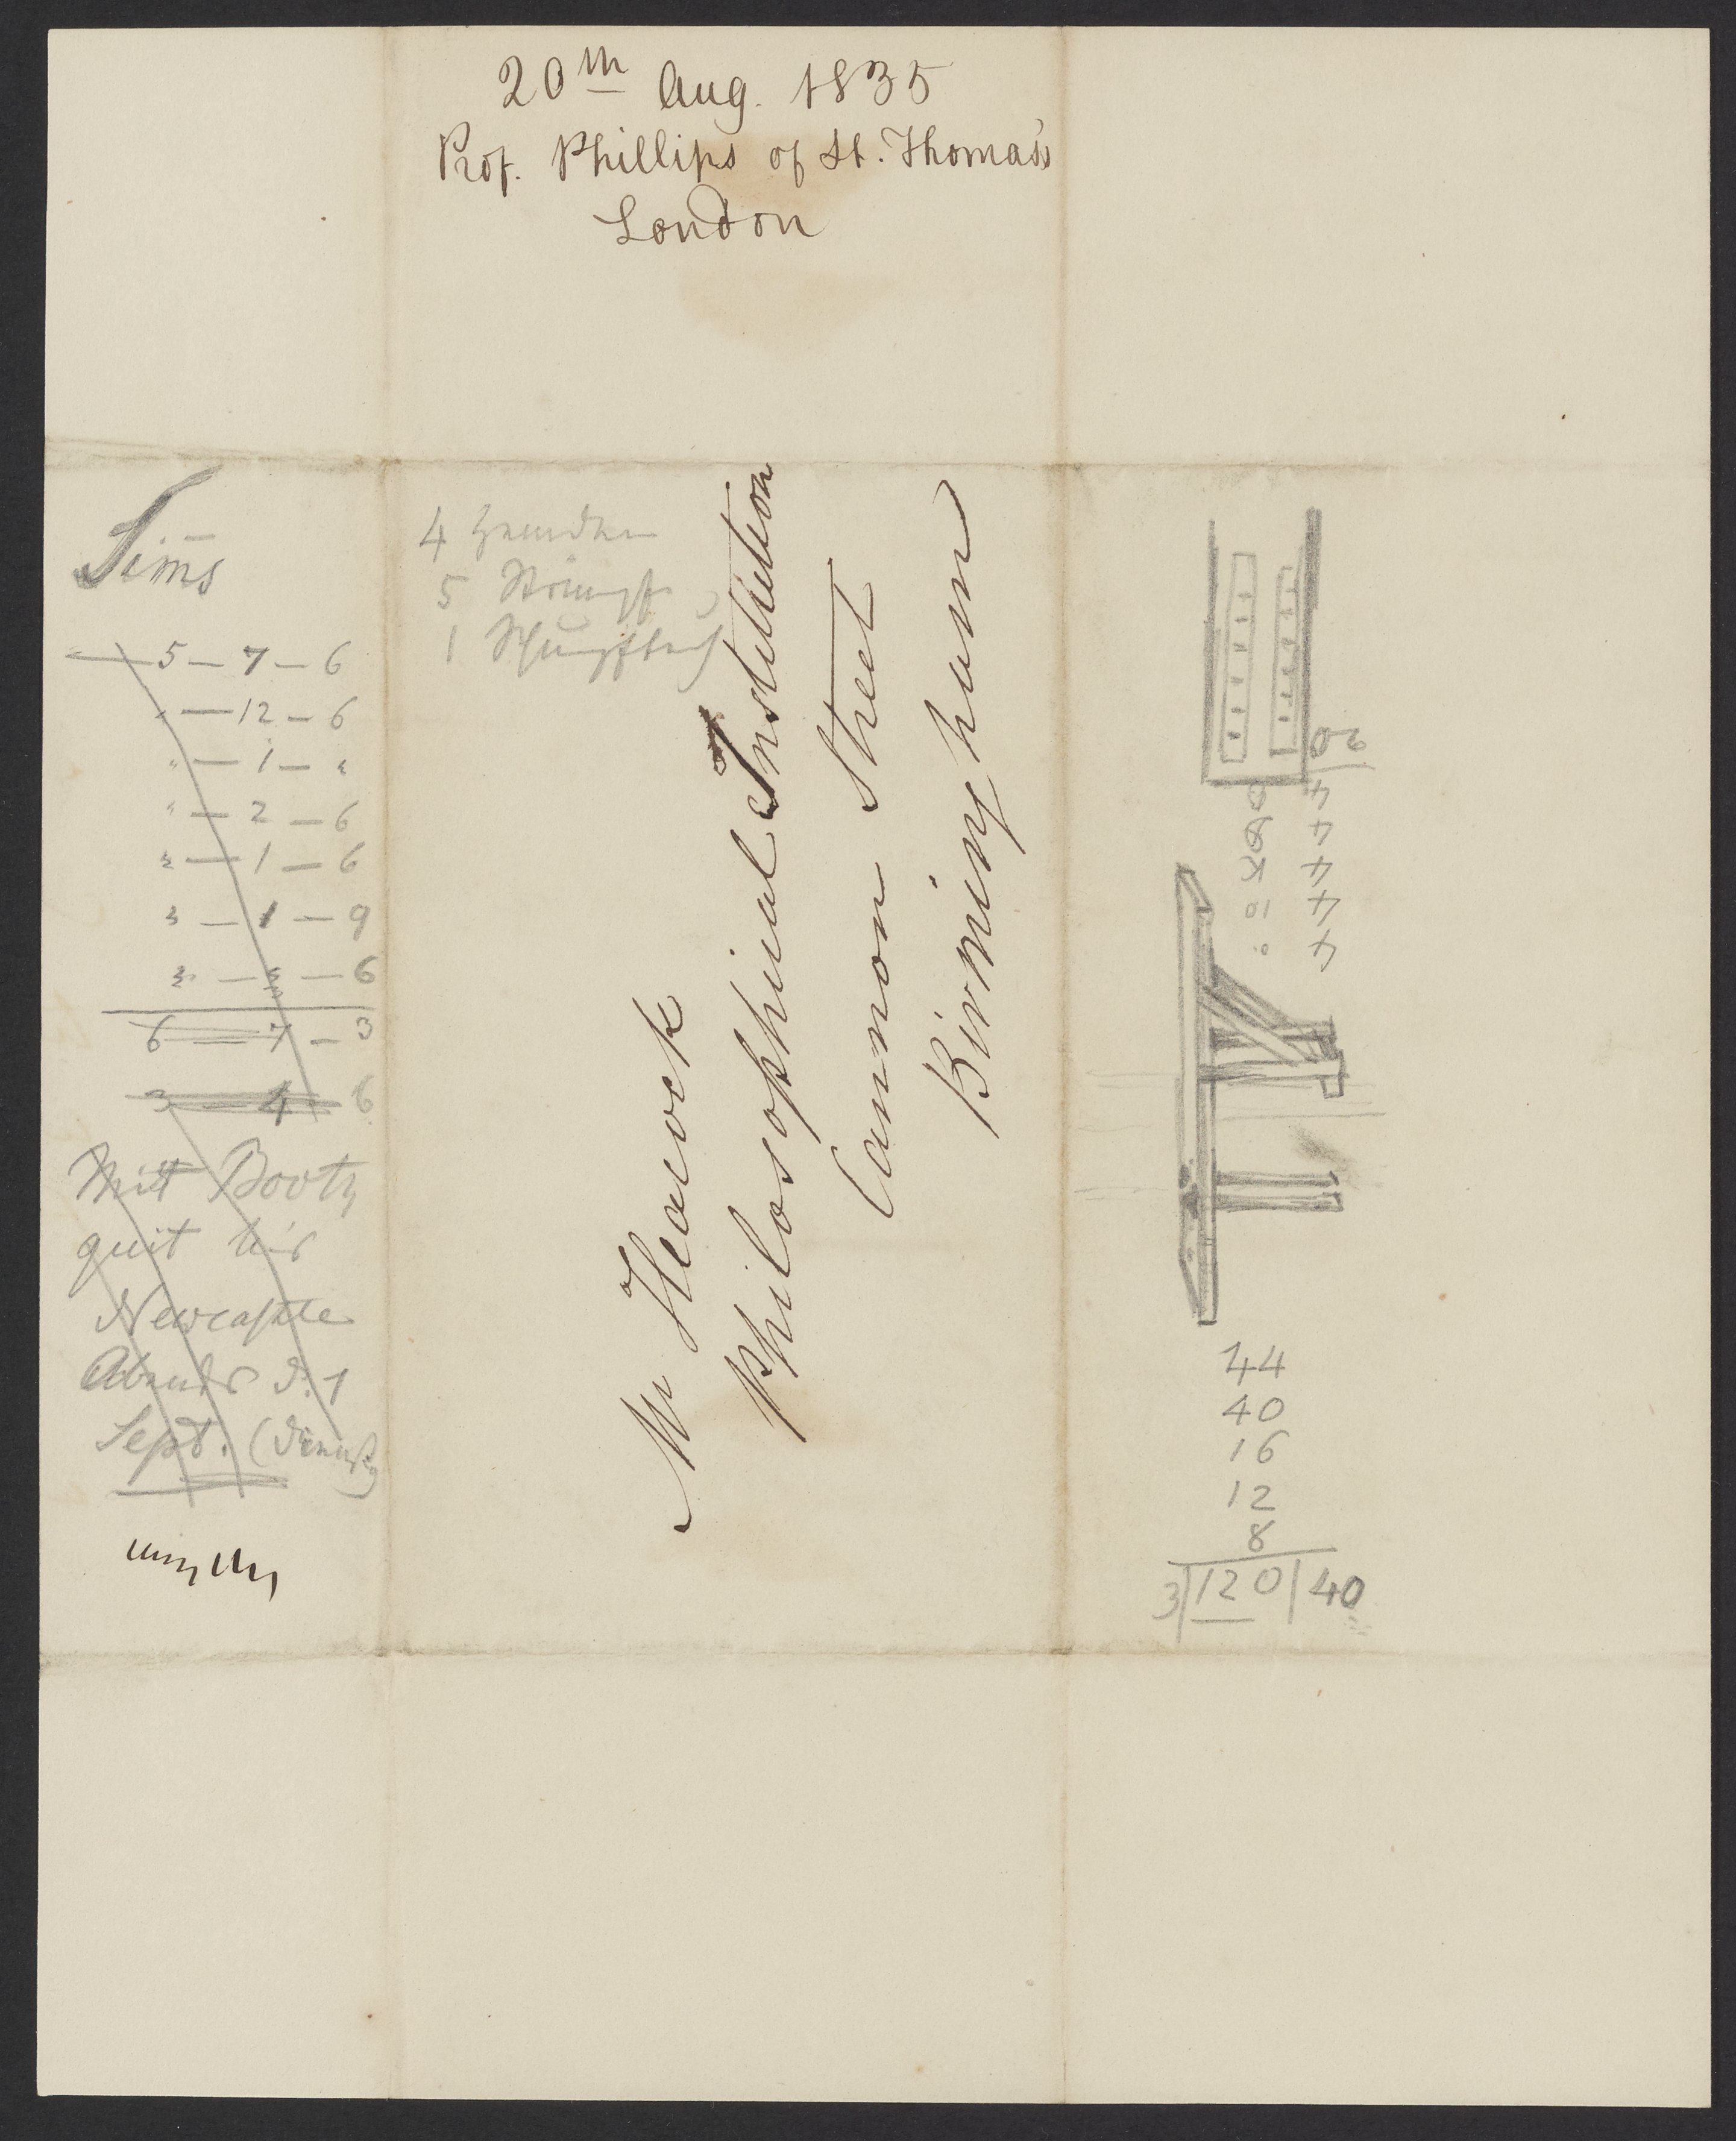 20th Aug. 1835
Prof. Phillips of St. Thomas's
London
Sims
5 — 7 — 6
" — 12 — 6
" — 1 — "
" — 2 — 6
" — 1 — 6
" — 1 — 9
" — " — 6
6 — 7 — 3
3 — 4 — 6
Mitt Booth
quit hir
Newcastle
Abends d. 1
Sept. (Dienstg
4 Hemden
5 Strümpfe
1 Schnupftuch
Mr Heacock
Philosophical Institution
Cannon Street
Birmingham
20
4
4
4
4
4
10
44
40
16
12
8
3|120|40